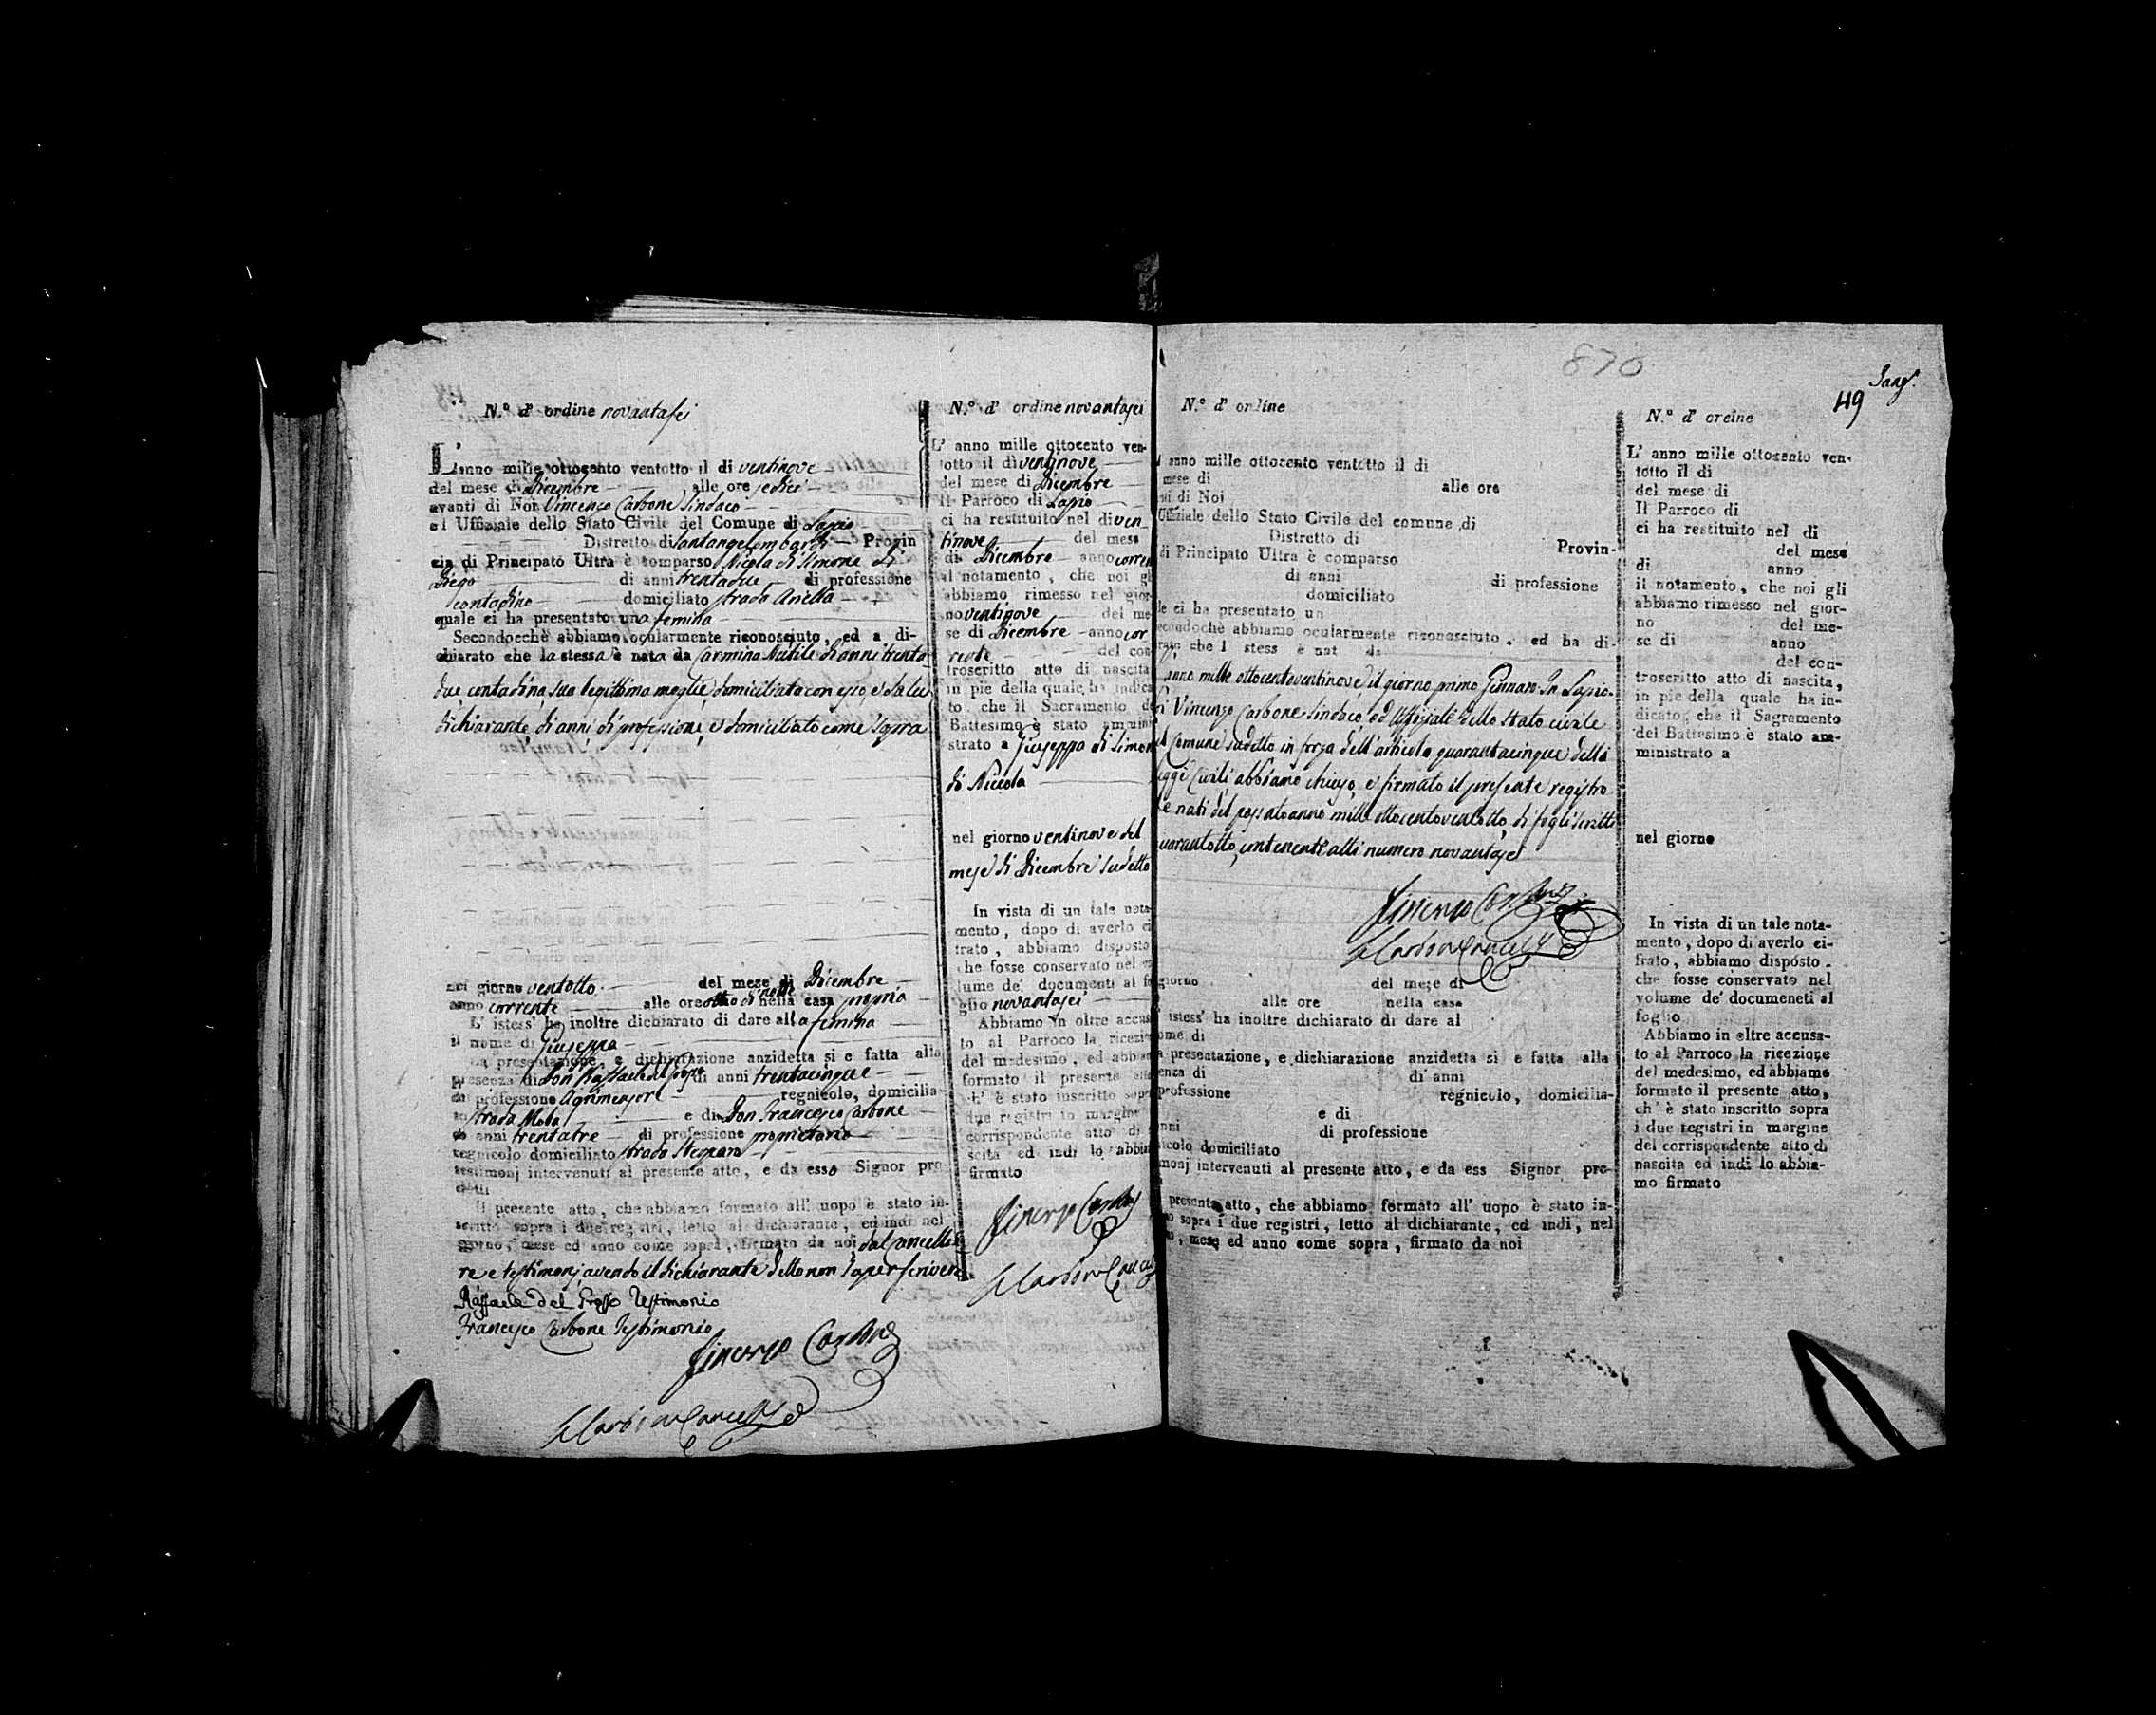 N.º d' ordine novantasei
L'anno mille ottocento ventotto il di ventinove
del mese di Dicembre alle ore sedici
avanti di Noi Vincenzo Carbone Sindaco
ed Uffiziale dello Stato Civile del Comune di Lapio
Distretto di Santangelombardi Provin
cia di Principato Ultra è comparso Nicola di Simone di
Diego di anni trentadue di professione
contadino domiciliato strada Anella
quale ci ha presentato una femina
Secondocchè abbiamo ocularmente riconosciuto, ed a di-
chiarato che la stessa è nata da Carmina Nutile di anni trenta
due contadina, sua legittima moglie, domiciliata con esso, e da lui
dichiarante, di anni, di professione, e domiciliato come sopra
nel giorno ventotto del mese di Dicembre
anno corrente alle ore otto di notte nella casa propria
L' istess' ha inoltre dichiarato di dare alla femina
il nome di Giuseppa
La presentazione, e dichiarazione anzidetta si e fatta alla
presenza di Don Raffaele del Grosso di anni trentacinque
di professione Agrimensore regnicolo, domicilia-
to strada Mola e di Don Francesco Carbone
di anni trentatre di professione proprietario
regnicolo domiciliato strada
testimonj intervenuti al presente atto, e da esso Signor pro-
dotti
Il presente atto, che abbiamo formato all' uopo è stato in-
scritto sopra i due registri, letto al dichiarante, ed indi nel
giorno, mese ed anno come sopra, firmato da noi, dal Cancellie
re e testimonj avendo il dichiarante detto non saper scrivere
Raffaele del Grosso Testimonio
Francesco Carbone Testimonio
Vincenzo Carbone
N.º d' ordine novantasei
L' anno mille ottocento ven-
totto il di ventinove
del mese di Dicembre
Il Parroco di Lapio
ci ha restituito nel di ven
tinove del mese
di Dicembre anno corren
al notamento, che noi gl
abbiamo rimesso nel gior-
no ventinove del me-
se di Dicembre anno cor
rente del con
troscritto atto di nascita
in piè della quale, ha indica
to che il Sacramento d
Battesimo è stato ammini
strato a Giuseppa di Simon
di Nicola
nel giorno ventinove del
mese di Dicembre sudetto
In vista di un tale nota-
mento, dopo di averlo ci
frato, abbiamo disposto
che fosse conservato nel
lume de' documenti al fo
glio novantasei
Abbiamo in oltre accus
to al Parroco la ricezio
del medesimo, ed abbiam
formato il presente att
ch' è stato inscritto sopr
due registri in margine
corrispondente atto di
scita ed indi lo abbia
firmato
Vincenzo Carbone
870
49
N.º d' ordine
anno mille ottocento ventotto il di
mese di alle ore
nti di Noi
Uffiziale dello Stato Civile del comune di
Distretto di Provin-
di Principato Ultra è comparso
di anni di professione
domiciliato
le ci ha presentato un
econdochè abbiamo ocularmente riconosciuto, ed ha di-
rato che l stess è nat da
anno mille ottocentoventinove, il giorno primo Gennaro In Lapio
i Vincenzo Carbone Sindaco, ed Uffiziale dello Stato civile
l Comune sudetto in forza dell'articolo quarantacinque delle
eggi Civili abbiamo chiuso, e firmato il presente registro
e nati del passato anno mille ottocentoventotto, di fogli scritti
uarantotto, contenenti atti numero novantasei
Vincenzo Carbone
giorno del mese di
alle ore nella casa
istess' ha inoltre dichiarato di dare al
ome di
a presentazione, e dichiarazione anzidetta si e fatta alla
enza di di anni
professione regnicolo, domicilia-
e di
nni di professione
icolo domiciliato
monj intervenuti al presente atto, e da ess Signor pro-
presente atto, che abbiamo formato all' uopo è stato in-
o sopra i due registri, letto al dichiarante, ed indi, nel
o, mese ed anno come sopra, firmato da noi
N.º d' oreine
L' anno mille ottocento ven-
totto il di
del mese di
Il Parroco di
ci ha restituito nel di
del mese
di anno
il notamento, che noi gli
abbiamo rimesso nel gior-
no del me-
se di anno
del con-
troscritto atto di nascita,
in piè della quale ha in-
dicato, che il Sagramento
del Battesimo è stato am-
ministrato a
nel giorno
In vista di un tale nota-
mento, dopo di averlo ci-
frato, abbiamo disposto
che fosse conservato nel
volume de' documeneti al
foglio
Abbiamo in oltre accusa-
to al Parroco la ricezione
del medesimo, ed abbiamo
formato il presente atto,
ch' è stato inscritto sopra
i due registri in margine
del corrispondente atto di
nascita ed indi lo abbia-
mo firmato